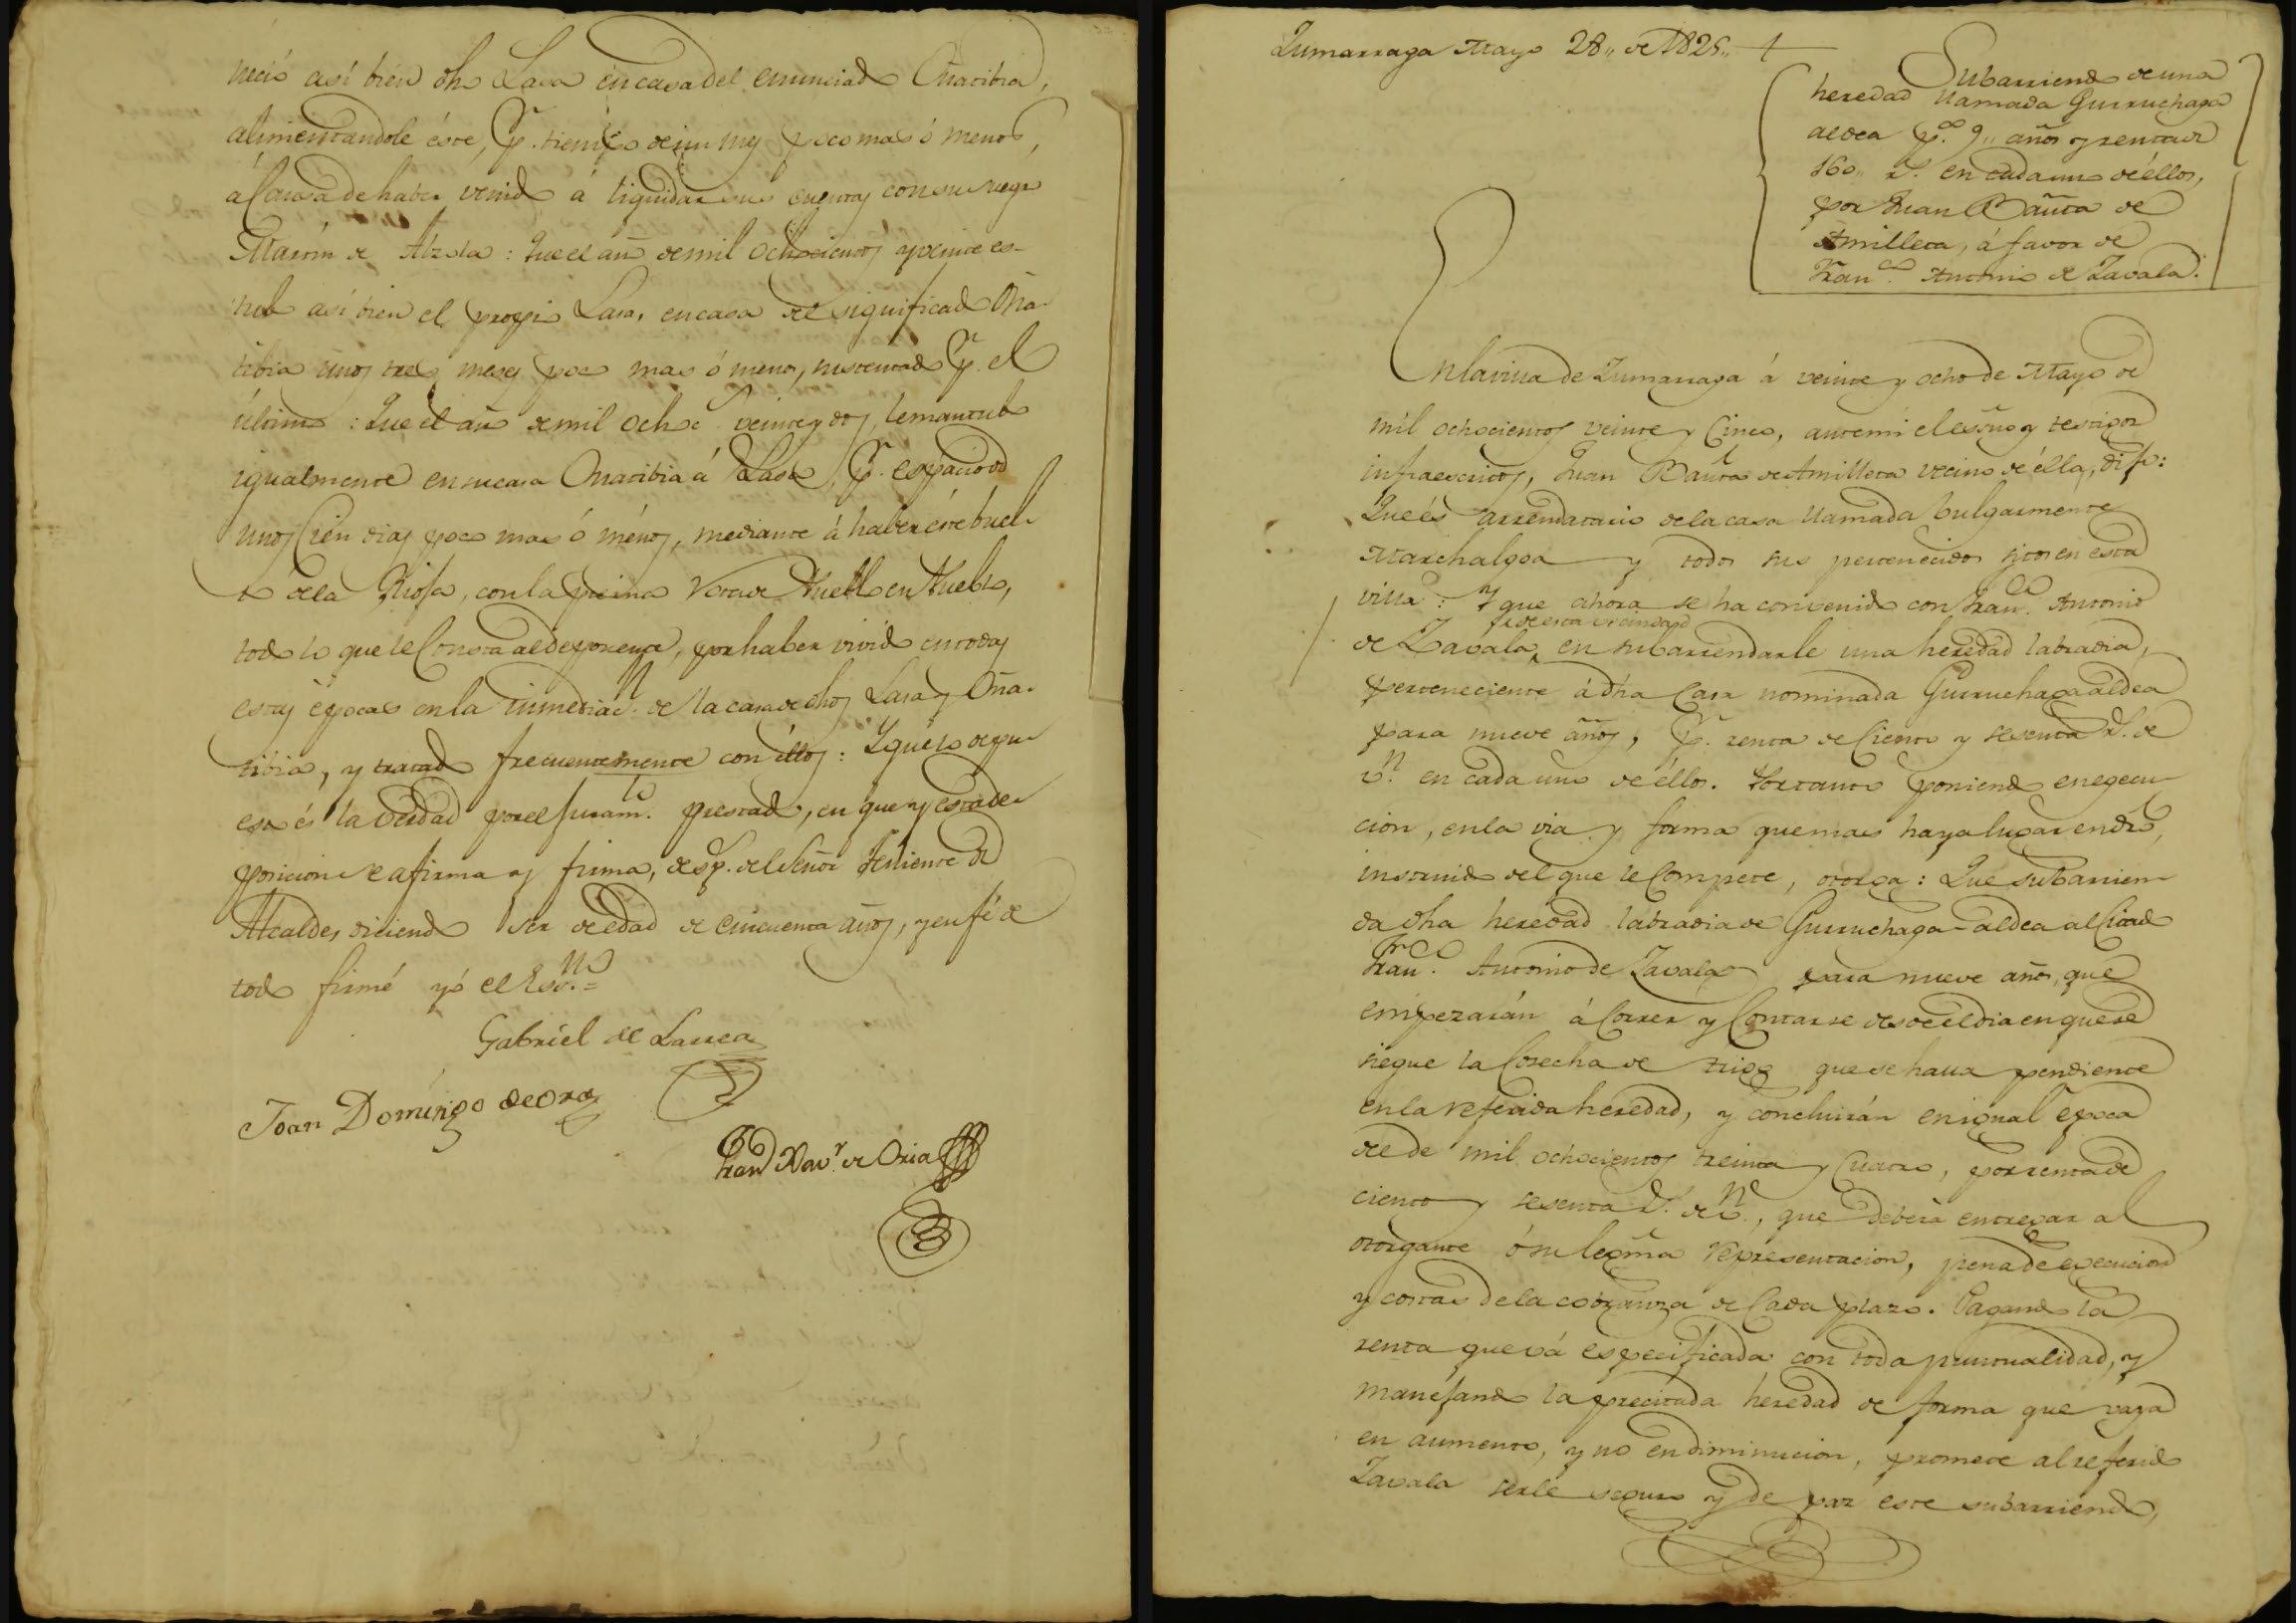 neció así bién dho Lasa en casa del enunciado Oñatibia,
alimentandole éste, pr. tiempo de un mes poco mas ó menos,
á causa de haber venido á liquidar sus cuentas con su
Martin de Alzola: Que el año de mil ochocientos y veinte es-
tubo así bien el propio Lasa, en casa del significado Oña-
tibia unos tres meses poco mas ó menos, sustentado pr. el
último: Que el año de mil ochoc.s veinte y dos, le mantubo
igualmente en su casa Oñatibia á Lasa, pr. espacio de
unos Cien dias poco mas ó ménos, mediante á haber éste buel-
to de la Rioja, con la
todo lo que le Consta al deponente, por haber vivido en todas
estas épocas en la inmediac.n de la casa de dhos Lasa y Oña-
tibia, y tratado frecuentemente con éllos: Y que lo depu-
esto és la verdad por el juram.to prestado, en que y esta de-
posicion se afirma y firma, desp. del Señor Teniente de
Alcalde, diciendo ser de edad de cincuenta años, y en fé de
todo firmé yó el Esc.no=
Gabriél de Larrea
Joan Domingo de Oraa
Fran.co Xav.r de Oria
Zumarraga Mayo 28,, de 1825,,
Subarriendo de una
heredad llamada Gurruchaga
aldea p.r 9,, años y renta de
160,, r.s en cada uno de éllos,
por Juan Bau.ta de
Amilleta, á favor de
Fran.co Antonio de Zavala.
En la villa de Zumarraga á veinte y ocho de Mayo de
mil ochocientos veinte y Cinco, ante mí el essno y testigos
infraescritos, Juan Bau.ta de Amilleta vecino de élla, dijo:
Que és arrendatario de la casa llamada bulgarmente
Marchalgoa y todos sus pertenecidos sitos en esta
villa: Y que ahora se ha convenido con Fran.co Antonio
de esta vecindad
de Zavala, en subarrendarle una heredad labradia,
perteneciente á dha Casa nominada Gurruchaga aldea
para nueve años, pr. renta de Ciento y sesenta r.s de
v.n en cada uno de éllos. Portanto poniendo en egecu-
cion, en la via y forma que mas haya lugar en dro,
instruido del que le Compete, otorga: Que subarrien-
da dha heredad labradia de Gurruchaga-aldea al Citado
Fran.co Antonio de Zavala para nueve años, que
empezarán á Correr y Contarse desde el dia en que se
siegue la Cosecha de trigo que se halla pendiente
en la referida heredad, y concluirán en igual época
del de mil ochocientos treinta y Cuatro, por renta de
ciento y sesenta r.s de v.n, que deberá entregar al
otorgante ó su legma representacion, pena de egecucion
y costas de la cobranza de Cada plazo. Pagando la
renta que vá especificada con toda puntualidad, y
manejando la precitada heredad de forma que vaya
en aumento, y no en diminucion, promete al referido
Zavala serle seguro y de paz este subarriendo,